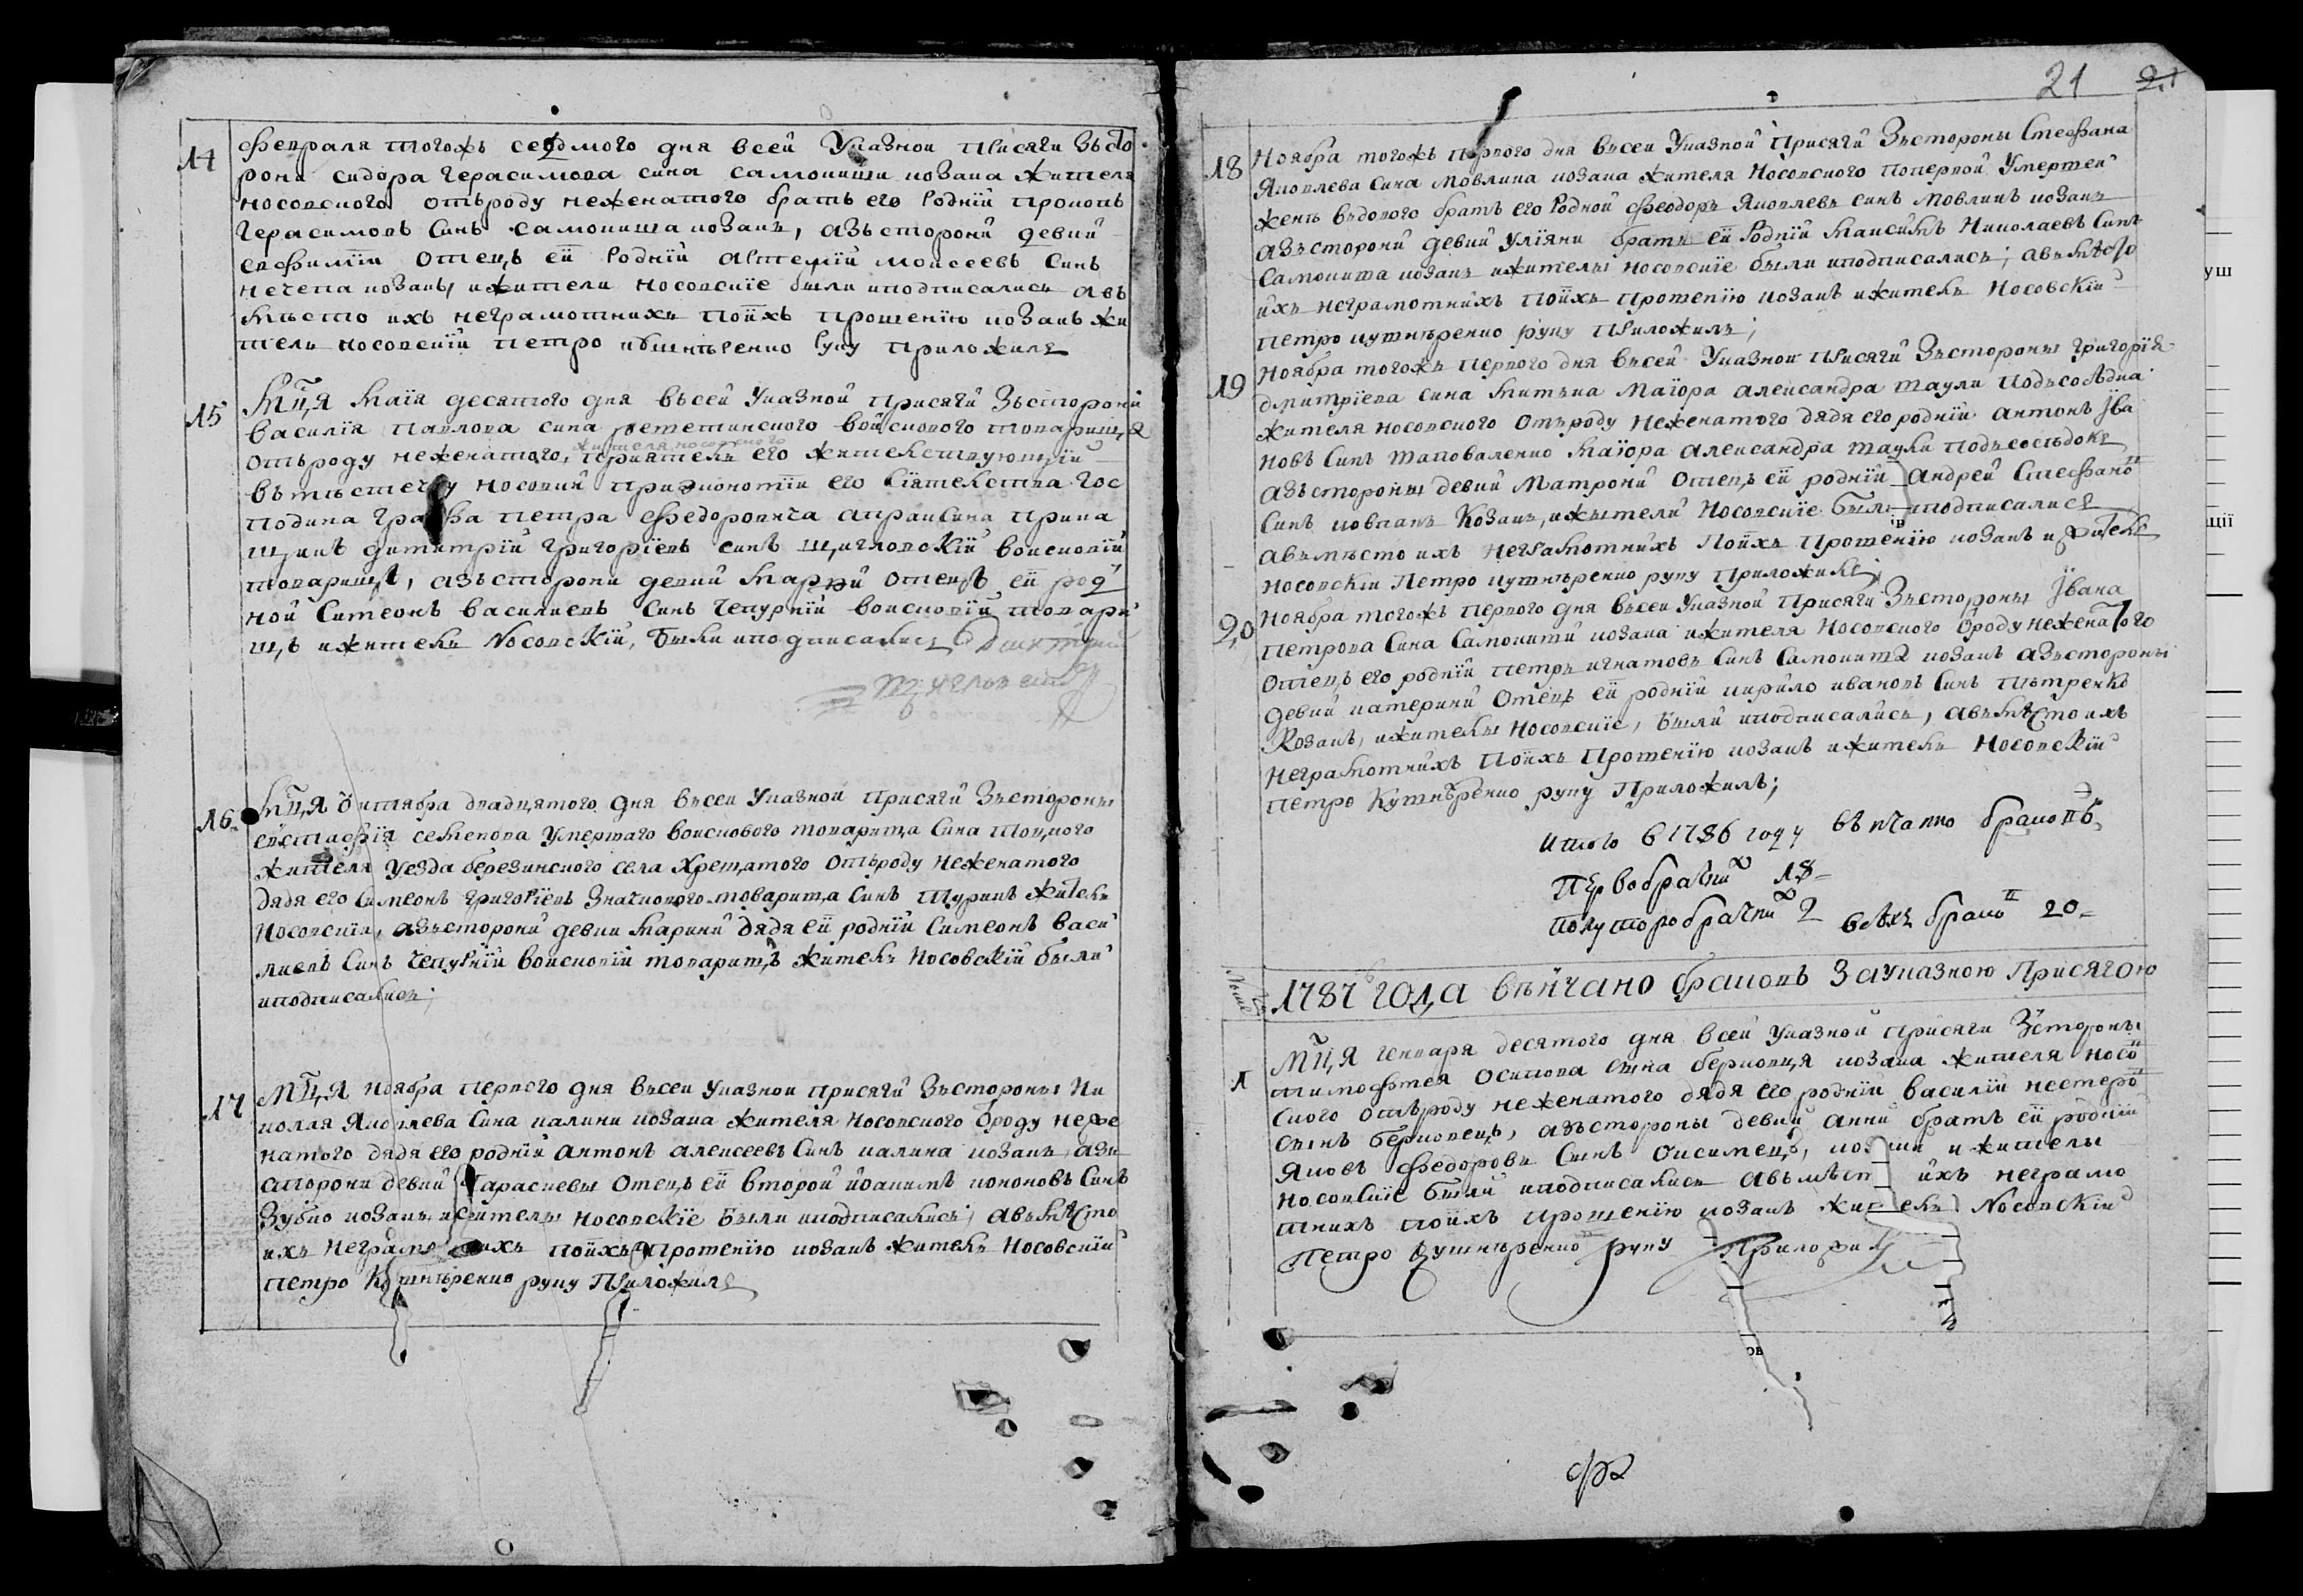 14 февраля тогожъ седмого дня всей Указной присяги Зъсто
рони сидора Герасимова сина самокиши козака жителя
носовского отъроду неженатого братъ его родній прокопъ
Герасимовъ Синъ самокиша козакъ, азъсторони девки
евфиміи отецъ ей родній артемій моисеевъ Синъ
нечепа козакъ, жители носовскіе были иподписались авъ
мѣсто ихъ неграмотнихъ поихъ прошенію козакъ жи
тель носовскій петро кушнѣренко руку приложилъ
15 Мця маія десятого дня въсей Указной присяги Зъсторони
василія павлова сина войскового товарища
отъроду неженатого, жителя носовского приятель его жителствующій
въмѣстечку носовки приэкономіи его Сіятелства Гос
подина Графа петра федоровича апраксина прика
щикъ димитрій григоріевъ синъ щигловскій войсковій
товарищъ, азъсторони девки марфи отецъ ей род
ной Симеонъ василиевъ Синъ Чепурній войсковій товари
щъ жителъ Носовскій, были иподписались Димитрій
Щигловский
16 Мця октября двадцятого дня въсей Указной Присяги Зъстороны
евстафія семенова Умершаго войскового товарища Сина Тоцкого
жителя Уезда березинского села Хрещатого отъроду неженатого
дядя его Симеонъ григоріевъ Значкового товарища Синъ Шуринъ житель
Носовскій, азъсторони девки Марини дядя ей родній Симеонъ Васи
лиевъ Синъ Чепурній войсковій товарищъ житель Носовскій были
иподписались;
17 Мця Ноября первого дня въсей Указной присяги Зъстороны Ни
колая Яковлева Сина калини козака жителя Носовского ѿроду неже
натого дядя его родній антонъ алексеевъ Синъ калина козакъ, азъ
сторони девки Параскевы отецъ ей второй иоакимъ кононовъ Синъ
Зубко козакъ жителы Носовскіе были иподписались; авъмѣсто
ихъ неграмотнихъ поихъ Прошенію козакъ житель Носовский
петро Кушнѣренко руку Приложилъ
21 21
18 Ноября тогожъ первого дня въсей Указной Присяги Зъстороны Стефана
Яковлева Сина Мовлина козака жителя Носовского поперВой Умершей
женѣ въдового братъ его Родной феодоръ Яковлевъ синъ мовлинъ козакъ
азъсторони девки Уліяни братъ ей Родній Максимъ Николаевъ Синъ
Самокиша козакъ жителы носовскіе были иподписались; авъмѣсто
ихъ неграмотнихъ поихъ прошенію козакъ житель Носовскій
петро кушнѣренко руку приложилъ;
19 Ноября тогожъ первого дня въсей Указной присяги Зъстороны григорія
дмитріева сина митъка Маіора александра шаули подъсосѣдка
жителя носовского отъроду неженатого дядя его родній антонъ Іва
новъ Синъ шаповаленко Маіора александра шаули подъсоседокъ
азъстороны девки Матрони отецъ ей родній андрей Стефано
Синъ ковпакъ Козакъ, жытели Носовскіе были иподписались
авъмѣсто ихъ неграмотнихъ поихъ Прошенію козакъ житель
носовскій Петро кушнѣренко руку приложилъ;
20 Ноября тогожъ первого дня въсей Указной Присяги Зъстороны Івана
петрова Сина Самокиши козака жителя Носовского ѿроду неженатого
отецъ его родній петръ игнатовъ Синъ Самокиша козакъ азъстороны
девки катерини отецъ ей родній кирило ивановъ Синъ Петренко
Козакъ, жителы Носовскіе, были иподписались, авъмѣсто ихъ
неграмотнихъ поихъ Прошенію козакъ житель Носовскій
петро Кушнѣренко руку Приложилъ;
Итого в 1786 году вѣнчанно браковъ
Первобрачних 18
полуторобрачних 2 всѣхъ браков 20
1787 года вѣнчано браковъ Зауказною Присягою
1 Мця генваря десятого дня всей указной присяги Зстороны
тимофтея Осипова сына берковця козака жителя Носов
ского отъроду неженатого дядя его родній василій нестеров
сынъ берковецъ, азъстороны девки анни братъ ей родній
Яковъ федоровъ Сынъ Онисимецъ, козаки и жителы
носовскіе были иподписались авъмѣст ихъ неграмо
тнихъ поихъ прошенію козакъ житель Носовскій
петро Кушнѣренко руку Приложил